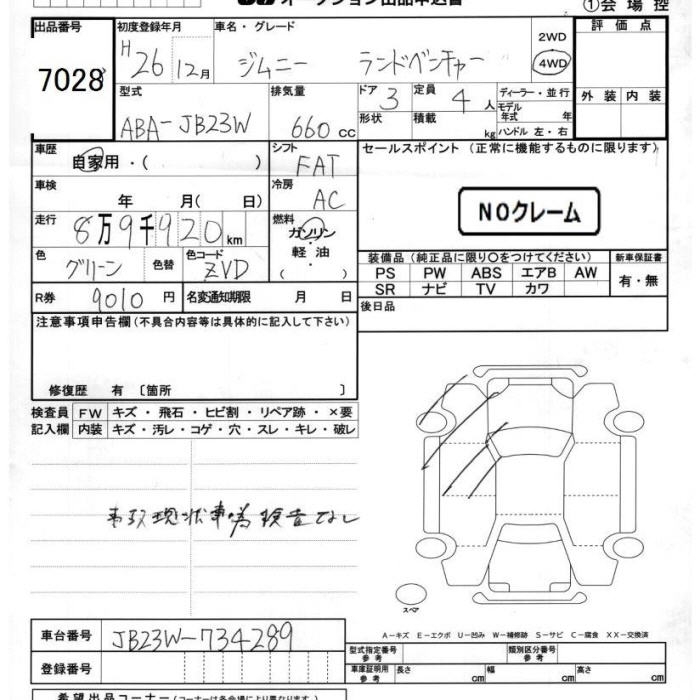 オークション出品申込書
①会場控
出品番号 初度登録年月 車名・グレード 評価点
7028 H26 12月 ジムニー ランドベンチャー 2WD 4WD
型式 排気量 ドア 3 定員 4人 ディーラー・並行 外装 内装
ABA-JB23W 660cc 形状 積載 kg モデル年式 年 ハンドル 左・右
車歴 シフト セールスポイント (正常に機能するものに限ります)
自家用・( ) FAT
車検 年 月( 日) 冷房 AC
NOクレーム
走行 8万9千920km 燃料 ガソリン・軽油 ( )
色 グリーン 色替 色コード ZVD
装備品(純正品に限り○をつけてください) 新車保証書
PS PW ABS エアB AW 有・無
SR ナビ TV カワ
R券 9010円 名変通知期限 月 日 後日品
注意事項申告欄(不具合内容等は具体的に記入して下さい)
修復歴 有 〔箇所 〕
検査員記入欄 FW キズ・飛石・ヒビ割・リペア跡・×要
内装 キズ・汚レ・コゲ・穴・スレ・キレ・破レ
事故現状車の為検査なし
スペア
A-キズ E-エクボ U-凹み W-補修跡 S-サビ C-腐食 XX-交換済
車台番号 JB23W-734289
型式指定番号 参考 類別区分番号 参考
登録番号 車庫証明用 参考 長さ cm 幅 cm 高さ cm
希望出品コーナー(コーナーは各会場により異なります)